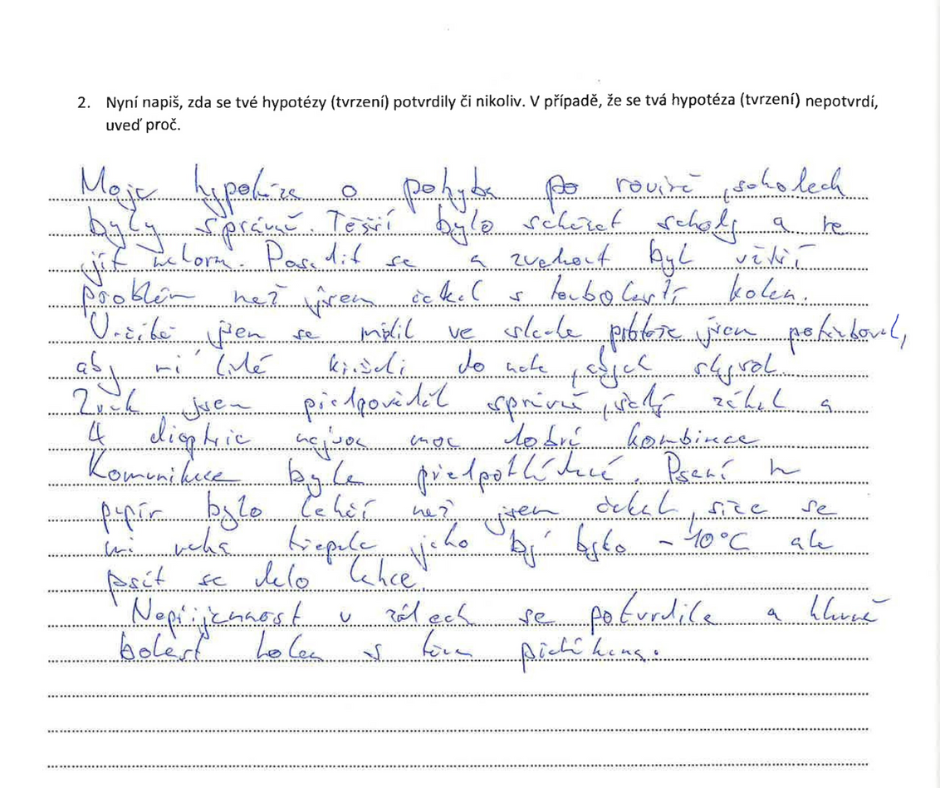 2. Nyní napiš, zda se tvé hypotézy (tvrzení) potvrdily či nikoliv. V případě, že se tvá hypotéza (tvrzení) nepotvrdí,
uveď proč.
Moje hypotéza o pohybu po rovině, schodech
byly správné. Těžší bylo scházet schody a ne
jít nahoru. Posadit se a zvednout byl větší
problém než jsem čekal s tou bolestí kolen.
Určitě jsem se mýlil ve sluchu protože jsem potřeboval,
aby mi lidé křičeli do ucha, abych slyšel.
Zrak jsem předpověděl správně, šedý zákal a
4 dioptrie nejsou moc dobrá kombinace
Komunikace byla předpokládaná. Psaní na
papír bylo lehčí než jsem čekal, sice se
mi ruka třepala jako by bylo -10°C ale
psát se dalo lehce.
Nepříjemnost v zádech se potvrdila a hlavně
bolest kolen s tím